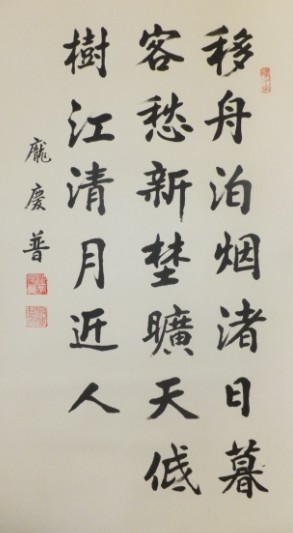 移舟泊烟渚日暮
客愁新埜曠天低
樹江清月近人
龐慶普